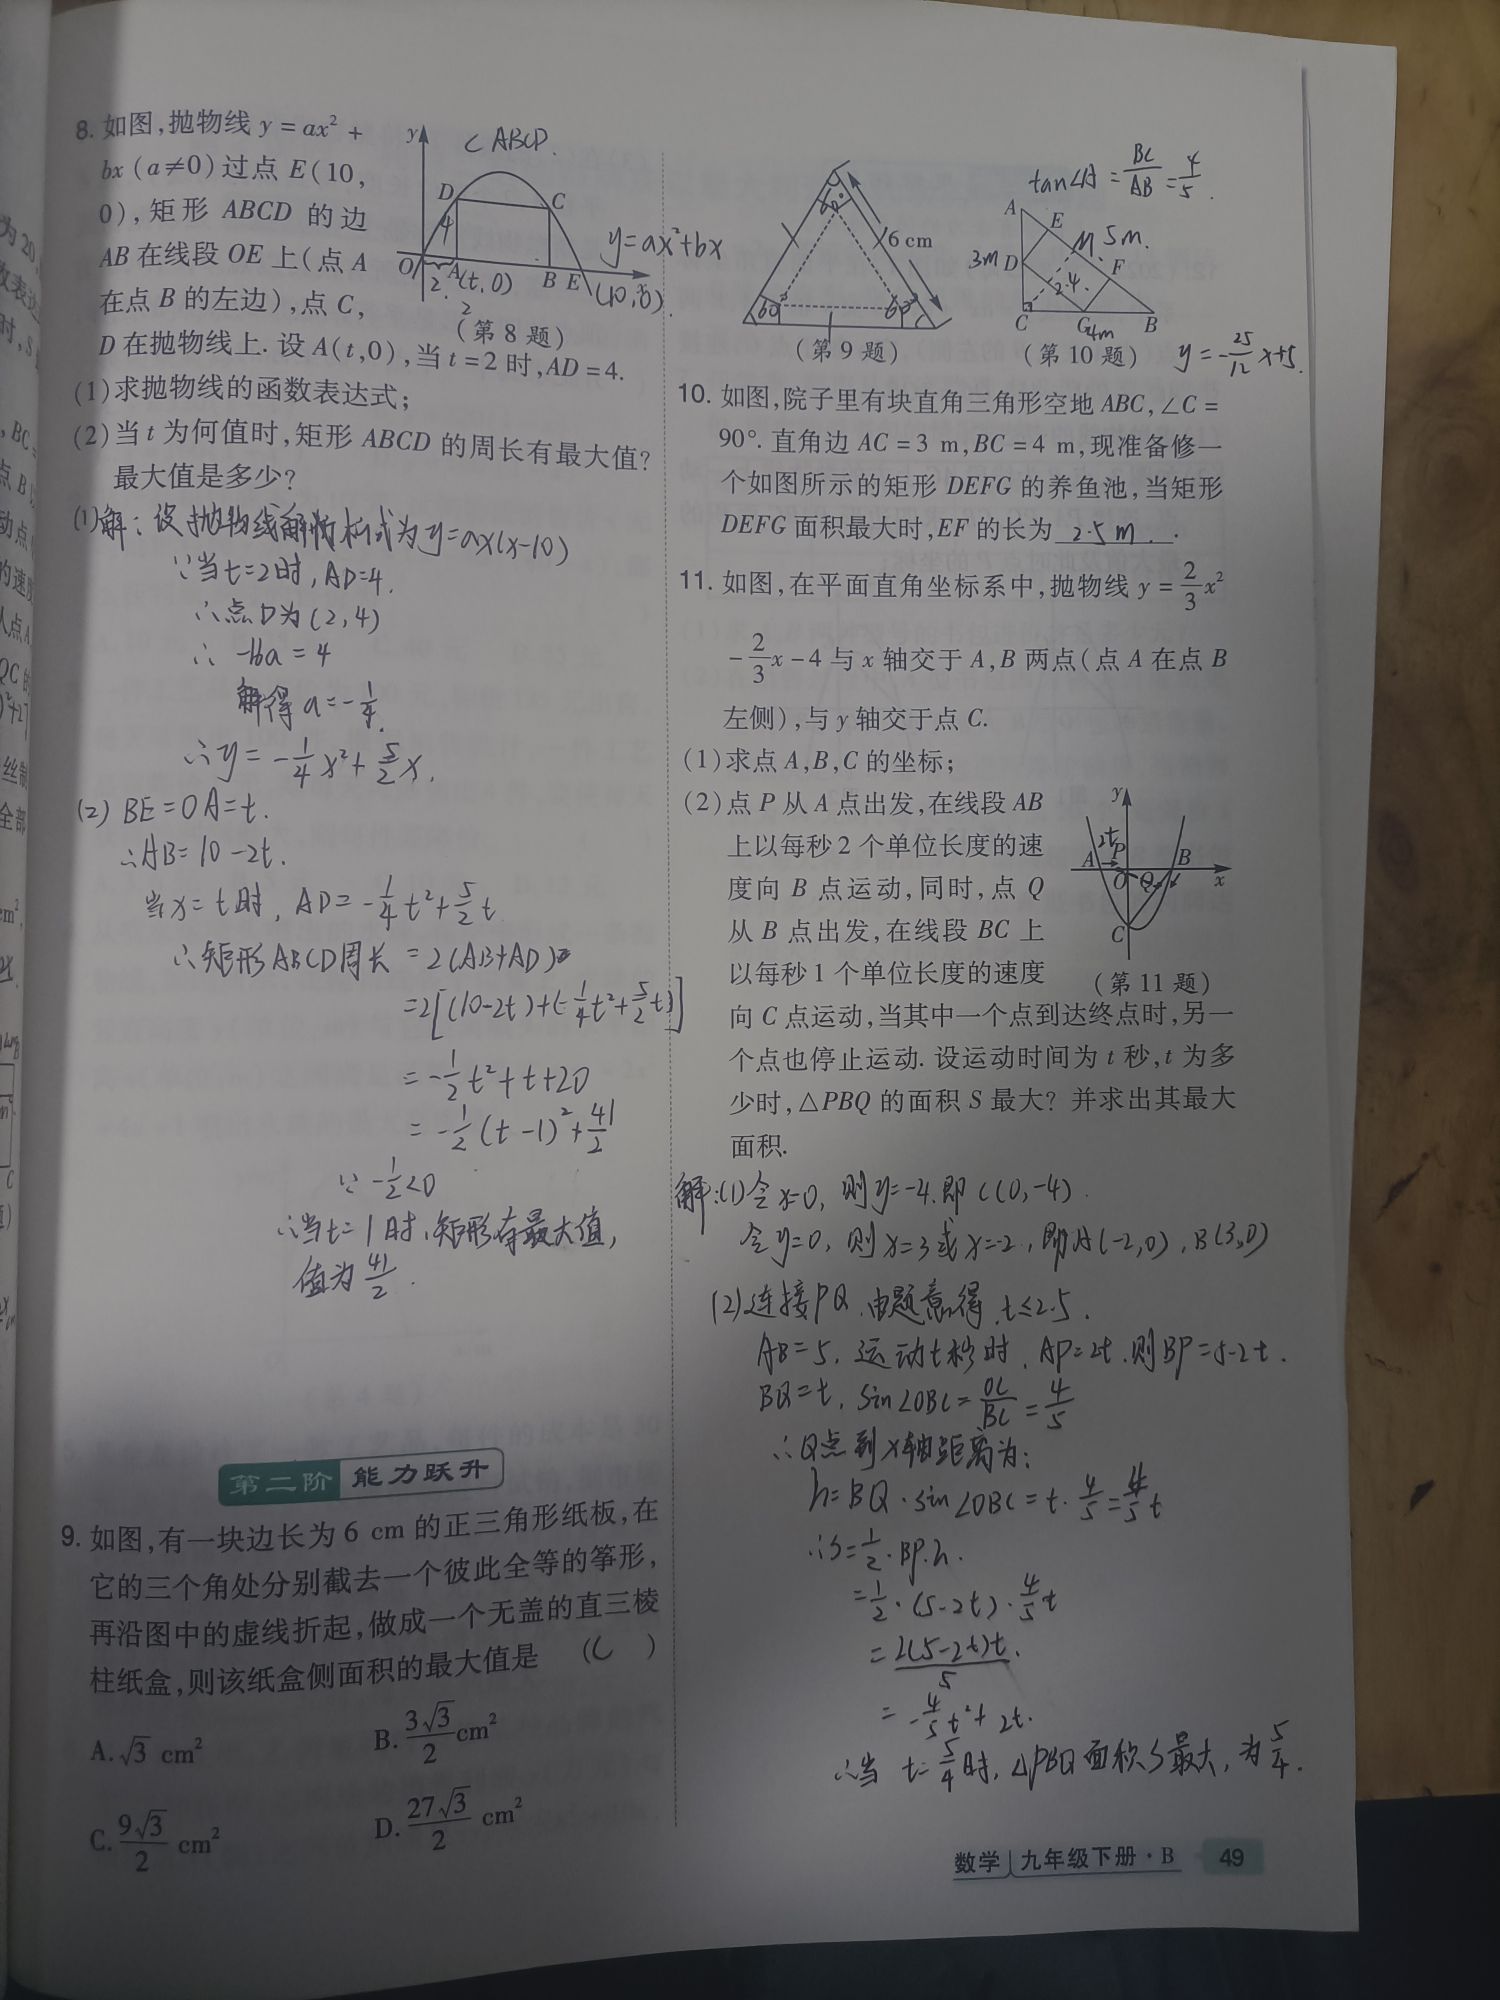 8. 如图,抛物线 y = ax² +
bx (a≠0) 过点 E(10,
0),矩形 ABCD 的边
AB 在线段 OE 上(点 A
在点 B 的左边),点 C,
D 在抛物线上. 设 A(t,0),当 t = 2 时, AD = 4.
C ABCD.
y
D
C
4
y=ax²+bx
O
A
(t,0)
B
E
(10,0)
x
2
2
(第 8 题)
(1)求抛物线的函数表达式;
(2)当 t 为何值时,矩形 ABCD 的周长有最大值?
最大值是多少?
(1)解:设抛物线解析式为y=ax(x-10)
∵当t=2时, AD=4.
∴点D为(2,4)
∴ -16a=4
解得a=-1/4.
∴y=-1/4x²+5/2x.
(2) BE=OA=t.
∴AB=10-2t.
当x=t时, AD=-1/4t²+5/2t
∴矩形ABCD周长 =2(AB+AD)
=2[(10-2t)+(-1/4t²+5/2t)]
=-1/2t²+t+20
=-1/2(t-1)²+41/2
∵ -1/2<0
∴当t=1时,矩形有最大值,
值为41/2.
第二阶 能力跃升
9. 如图,有一块边长为 6 cm 的正三角形纸板,在
它的三个角处分别截去一个彼此全等的筝形,
再沿图中的虚线折起,做成一个无盖的直三棱
柱纸盒,则该纸盒侧面积的最大值是 ( C )
A. √3 cm²
B. 3√3/2 cm²
C. 9√3/2 cm²
D. 27√3/2 cm²
60°
6 cm
60
60
(第 9 题)
tan∠A=BC/AB=4/5.
A
E
M 5m.
3m
D
F
2.4.
C
G
4m
B
(第 10 题)
y=-25/12x+5.
10. 如图,院子里有块直角三角形空地 ABC,∠C =
90°. 直角边 AC = 3 m, BC = 4 m,现准备修一
个如图所示的矩形 DEFG 的养鱼池,当矩形
DEFG 面积最大时,EF 的长为 2.5 m .
11. 如图,在平面直角坐标系中,抛物线 y = 2/3x²
- 2/3x - 4 与 x 轴交于 A,B 两点(点 A 在点 B
左侧),与 y 轴交于点 C.
(1)求点 A,B,C 的坐标;
(2)点 P 从 A 点出发,在线段 AB
上以每秒 2 个单位长度的速
度向 B 点运动,同时,点 Q
从 B 点出发,在线段 BC 上
以每秒 1 个单位长度的速度
向 C 点运动,当其中一个点到达终点时,另一
个点也停止运动. 设运动时间为 t 秒,t 为多
少时,△PBQ 的面积 S 最大? 并求出其最大
面积.
y
2t
A
P
B
O
Q
x
C
(第 11 题)
解:(1)令x=0, 则y=-4.即C(0,-4).
令y=0, 则x=3或x=-2, 即A(-2,0), B(3,0)
(2)连接PQ.由题意得,t≤2.5.
AB=5. 运动t秒时, AP=2t.则BP=5-2t.
BQ=t, sin∠OBC=OC/BC=4/5
∴Q点到x轴距离为:
h=BQ·sin∠OBC=t·4/5=4/5t
∴S=1/2·BP·h.
=1/2·(5-2t)·4/5t
=2(5-2t)t/5.
=-4/5t²+2t.
∴当 t=5/4时,△PBQ面积S最大, 为5/4.
数学 九年级下册·B 49